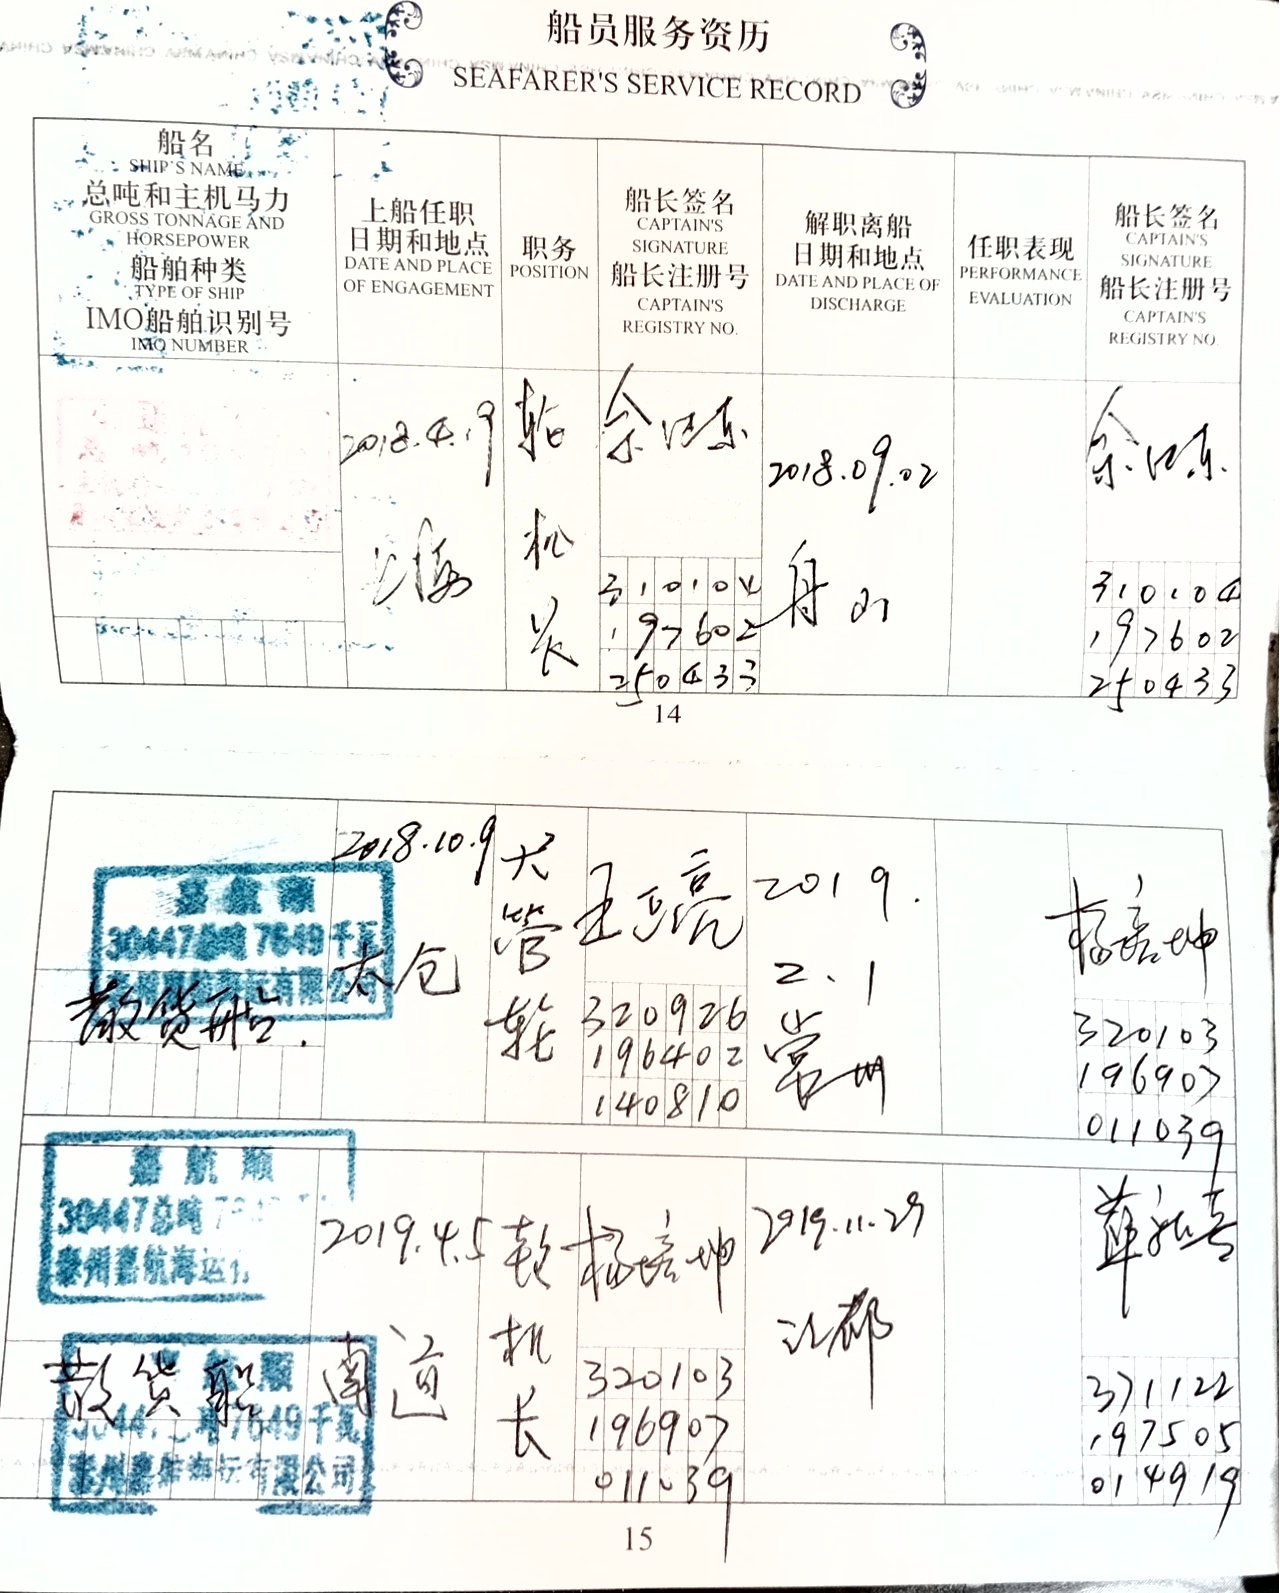 船员服务资历
SEAFARER'S SERVICE RECORD
船名
SHIP'S NAME
总吨和主机马力
GROSS TONNAGE AND
HORSEPOWER
船舶种类
TYPE OF SHIP
IMO船舶识别号
IMO NUMBER
上船任职
日期和地点
DATE AND PLACE
OF ENGAGEMENT
职务
POSITION
船长签名
CAPTAIN'S
SIGNATURE
船长注册号
CAPTAIN'S
REGISTRY NO.
解职离船
日期和地点
DATE AND PLACE OF
DISCHARGE
任职表现
PERFORMANCE
EVALUATION
船长签名
CAPTAIN'S
SIGNATURE
船长注册号
CAPTAIN'S
REGISTRY NO.
2018.4.19
上海
轮
机
长
310104
197602
250433
2018.09.02
舟山
310104
197602
250433
14
嘉航顺
30447总吨 7649千瓦
泰州嘉航海运有限公司
散货船.
2018.10.9
太仓
大
管
轮
320926
196402
140810
2019.
2.1
常州
杨培坤
320103
196907
011039
嘉航顺
30447总吨
泰州嘉航海运
航顺
7649千瓦
泰州嘉航海运有限公司
散货船
2019.4.5
南通
轮
机
长
杨培坤
320103
196907
011039
2019.11.29
江都
371122
197505
014919
15